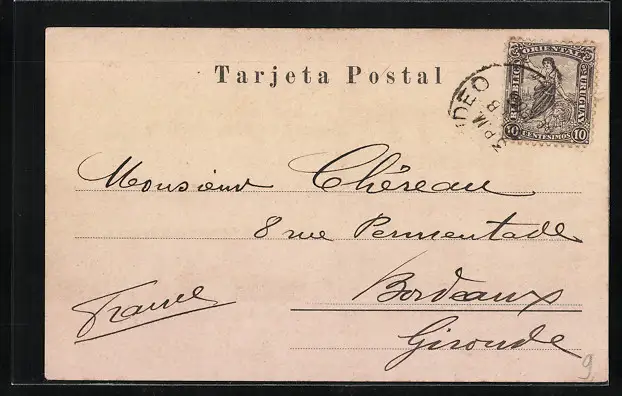 Tarjeta Postal
REPUBLICA ORIENTAL URUGUAY
10 CENTESIMOS 10
DEO
Monsieur Chéreau
8 rue Permentade
Bordeaux
France
Gironde
9